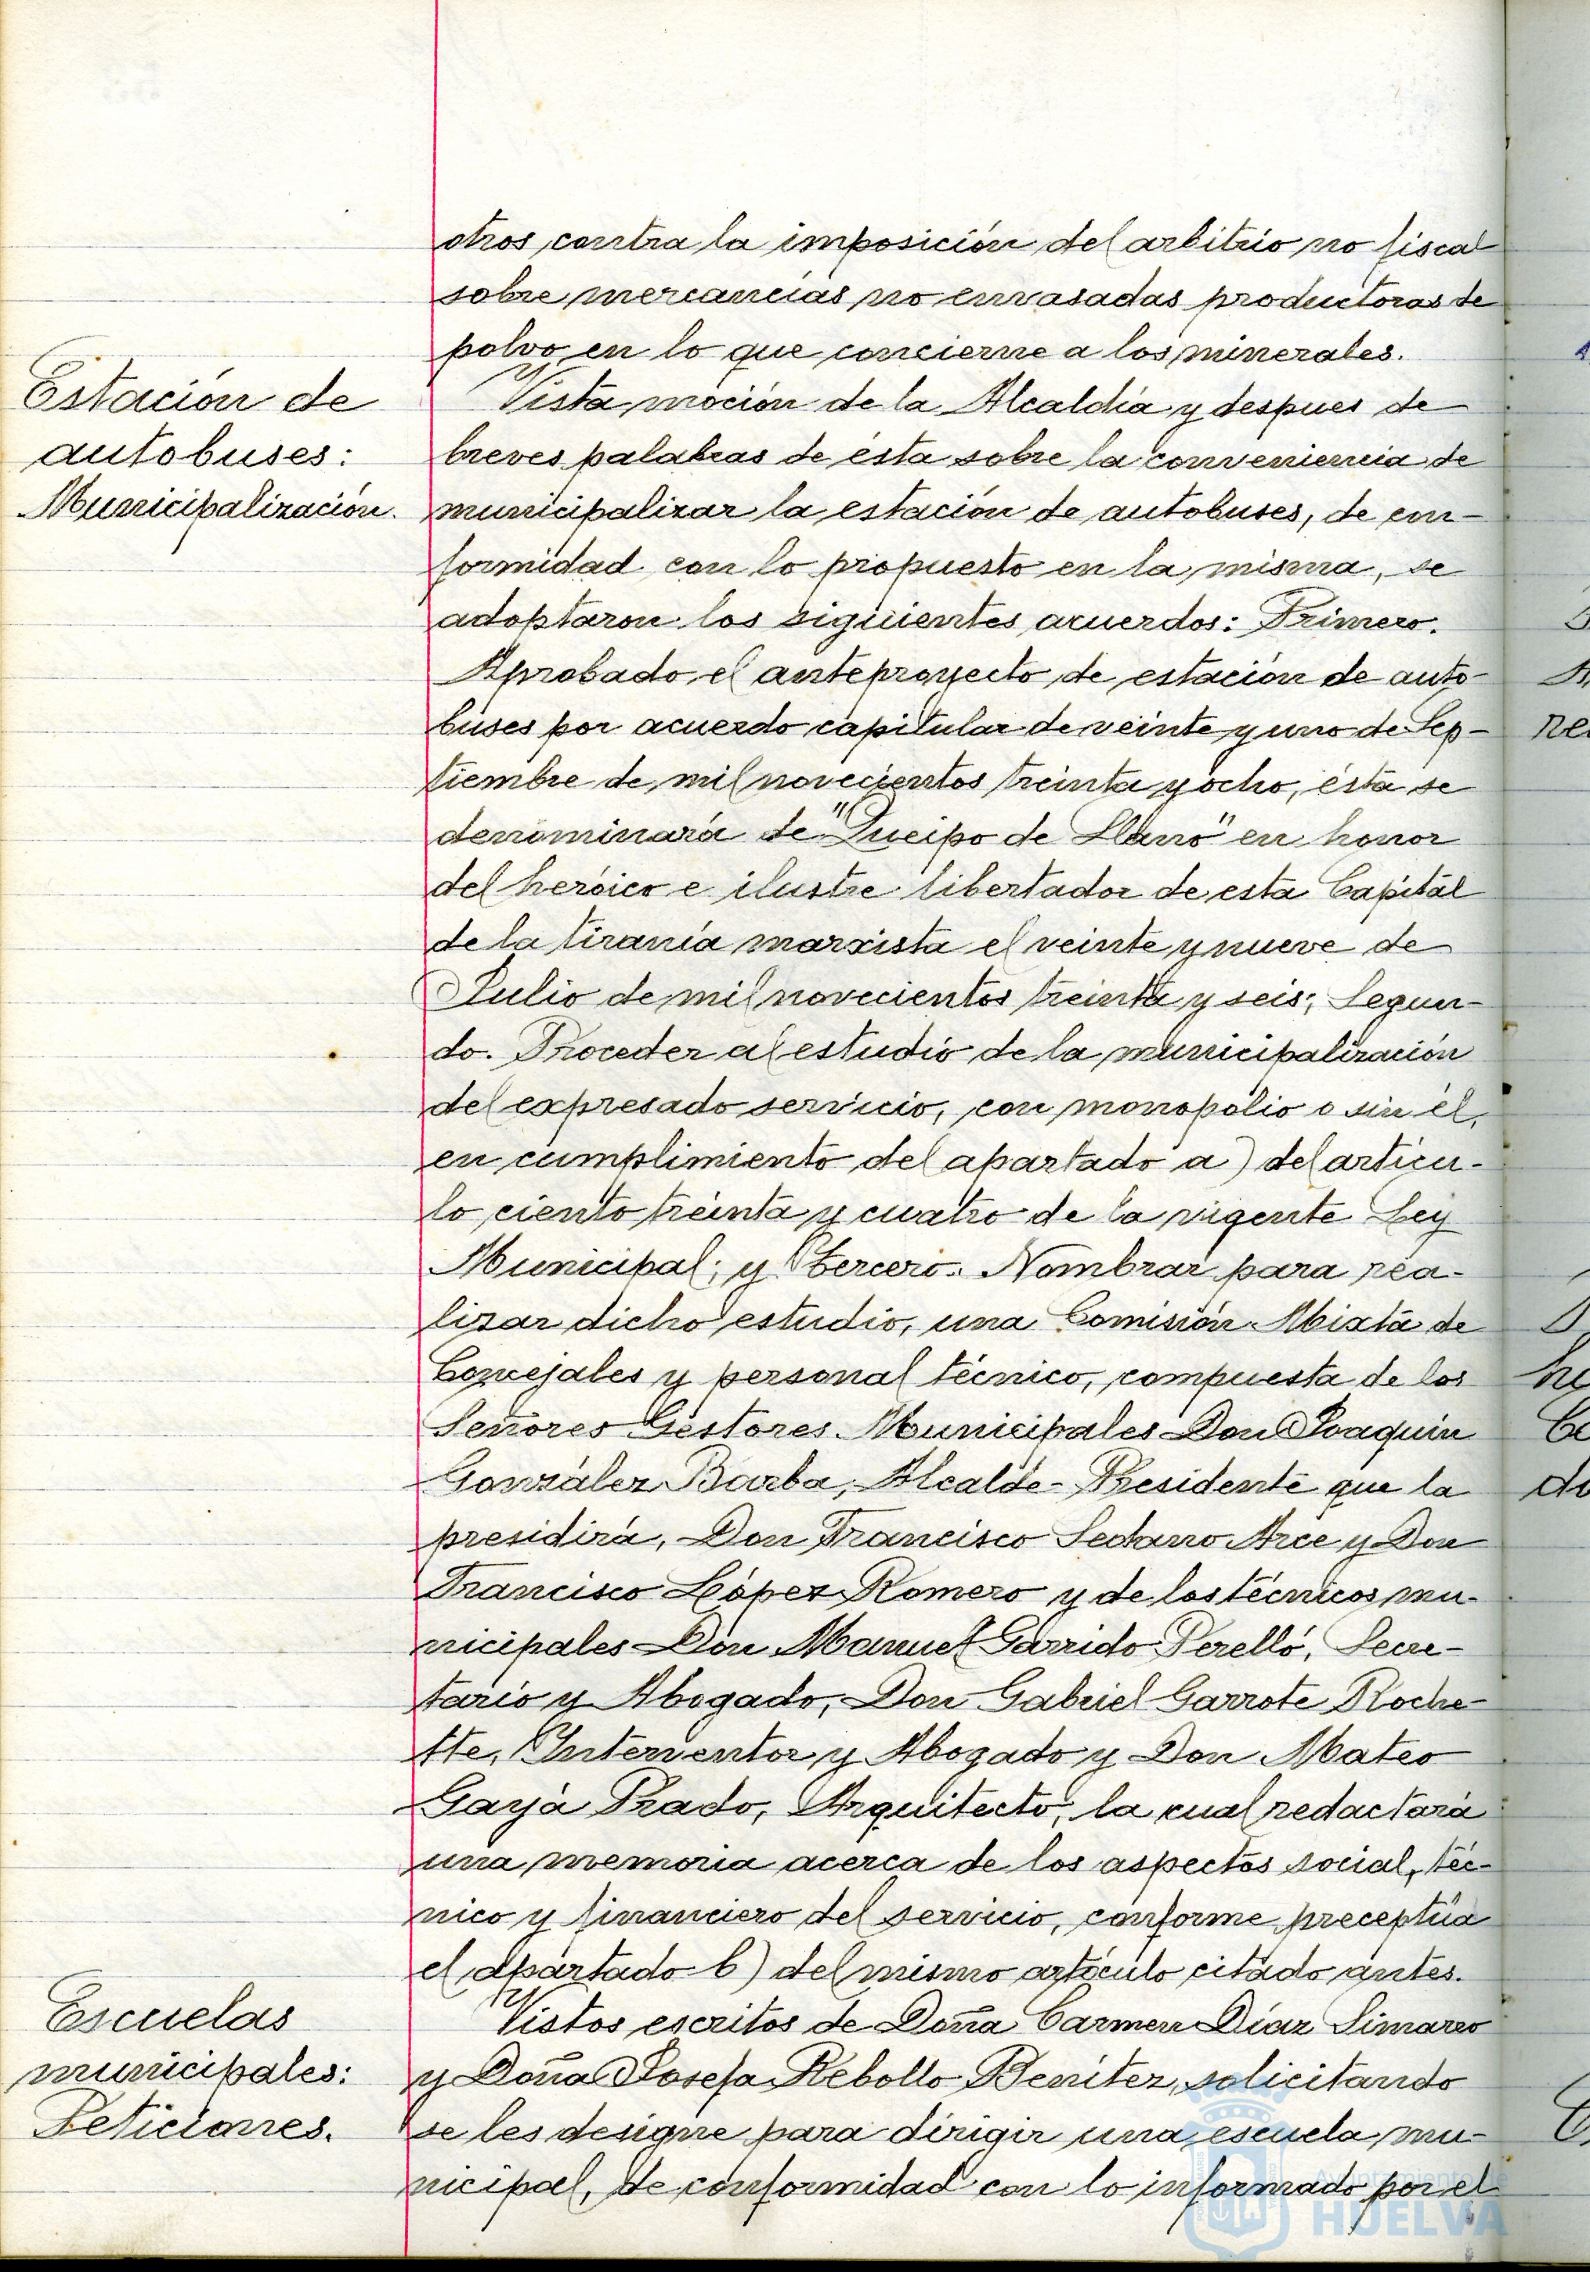 otros contra la imposición del arbitrio no fiscal
sobre mercancias no envasadas productoras de
polvo en lo que concierne a los minerales.
Estación de
autobuses:
Municipalización.
Vista moción de la Alcaldía y despues de
breves palabras de ésta sobre la conveniencia de
municipalizar la estación de autobuses, de con-
formidad con lo propuesto en la misma, se
adoptaron los siguientes acuerdos: Primero.
Aprobado el anteproyecto de estación de auto-
buses por acuerdo capitular de veinte y uno de Sep-
tiembre de mil novecientos treinta y ocho, ésta se
denominará de "Queipo de Llano" en honor
del heróico e ilustre libertador de esta Capital
de la tiranía marxista el veinte y nueve de
Julio de mil novecientos treinta y seis; Segun-
do. Proceder al estudio de la municipalización
del expresado servicio, con monopolio o sin él,
en cumplimiento del apartado a) del artícu-
lo ciento treinta y cuatro de la vigente Ley
Municipal; y tercero. Nombrar para rea-
lizar dicho estudio, una Comisión Mixta de
Concejales y personal técnico, compuesta de los
Señores Gestores Municipales Don Joaquín
González Barba, Alcalde-Presidente que la
presidirá, Don Francisco Sedano Arce y Don
Francisco López Romero y de los técnicos mu-
nicipales Don Manuel Garrido Perelló, Secre-
tario y Abogado, Don Gabriel Garrote Roche-
tte, Interventor y Abogado y Don Mateo
Gayá Prado, Arquitecto, la cual redactará
una memoria acerca de los aspectos social, téc-
nico y financiero del servicio, conforme preceptúa
el apartado b) del mismo artículo citado antes.
Escuelas
municipales:
Peticiones.
Vistos escritos de Doña Carmen Díaz Simarro
y Doña Josefa Rebollo Benitez, solicitando
se les designe para dirigir una escuela mu-
nicipal, de conformidad con lo informado por el
Ayuntamiento de
HUELVA